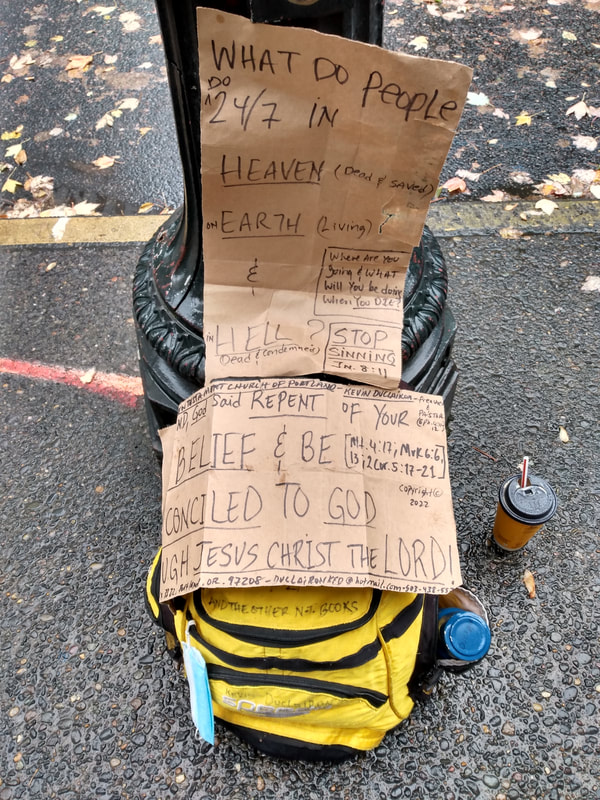 WHAT DO PEOPLE
DO
24/7 IN
HEAVEN (Dead & SAVED)
ON EARTH (Living) ?
&
Where Are You
going & WHAT
Will You be doing
When You DIE?
in HELL?
(Dead & Condemned)
STOP
SINNING
JN. 8:11
MENT CHURCH OF PORTLAND - KEVIN DUCLAIRON -
God Said REPENT OF YOUR
BELIEF & BE
[Mt. 4:17; Mrk 6:6,
13; 2 Cor. 5:17-21]
CONCILED TO GOD
Copyright ©
2022
UGH JESUS CHRIST THE LORD!
OR. 97208 - DUCLAIRONKED@hotmail.com - 503-438-
AND THE OTHER N.T. BOOKS
Kevin Duclairon
SPEED